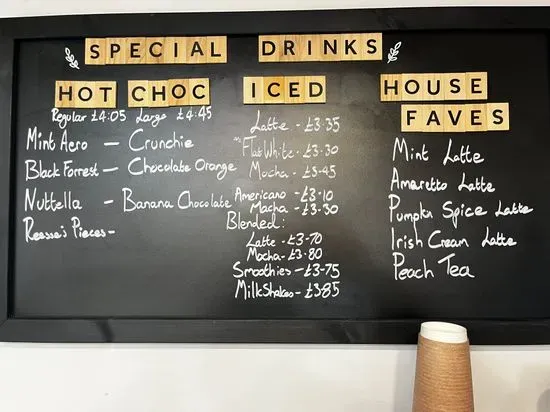 SPECIAL DRINKS
HOT CHOC
Regular £4.05 Large £4.45
Mint Aero — Crunchie
Black Forrest — Chocolate Orange
Nuttella — Banana Chocolate
Reese's Pieces —
ICED
Latte - £3.35
Flat White - £3.30
Mocha - £3.45
Americano - £3.10
Macha - £3.30
Blended:
Latte - £3.70
Mocha - £3.80
Smoothies - £3.75
MilkShakes - £3.85
HOUSE
FAVES
Mint Latte
Amaretto Latte
Pumpkn Spice Latte
Irish Cream Latte
Peach Tea